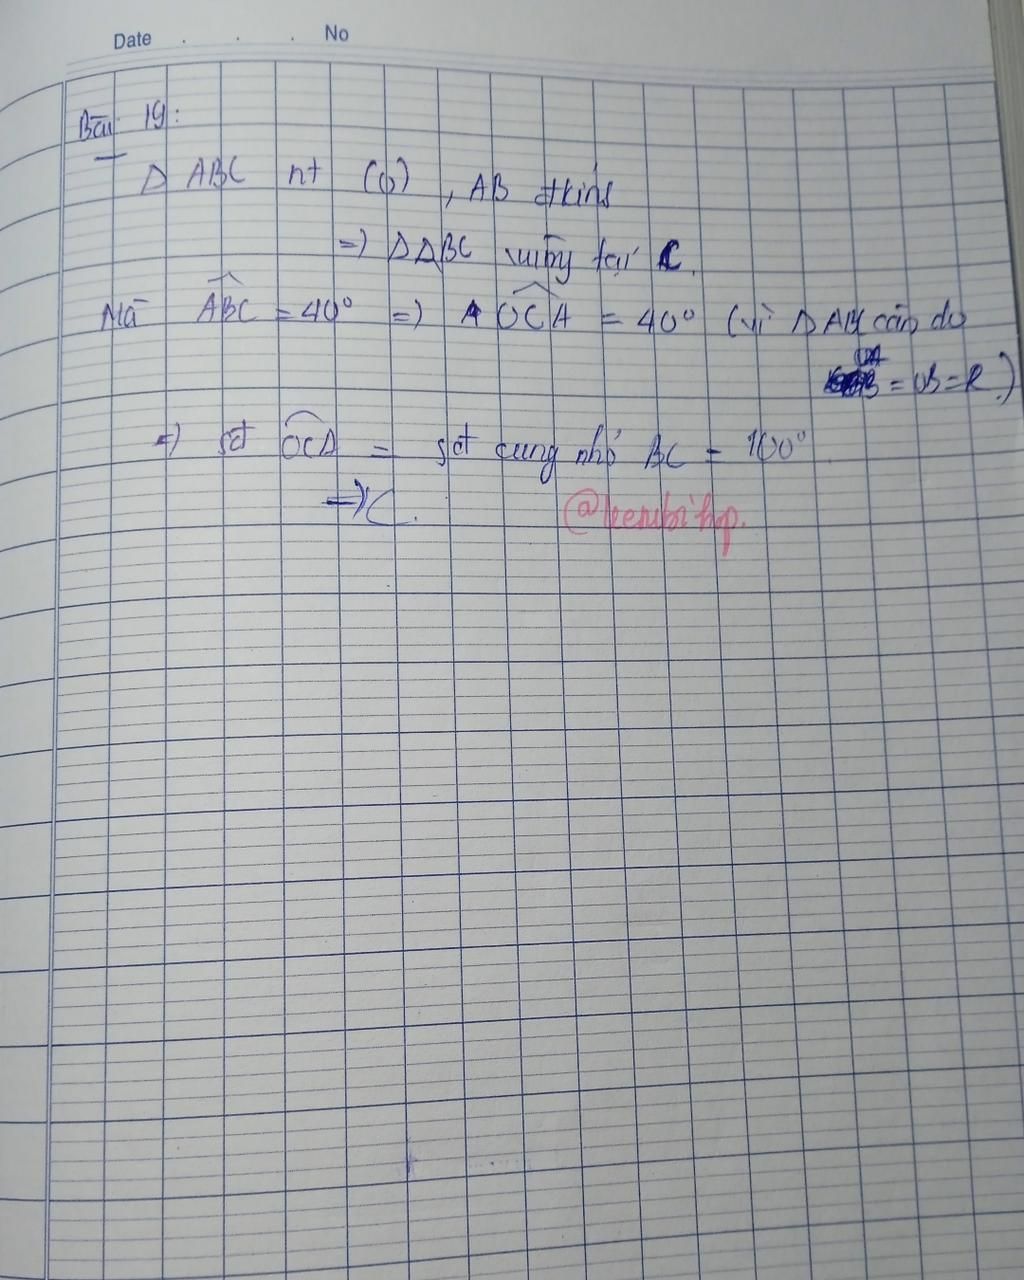 Date . . . No
Bài 19:
Δ ABC nt (O), AB đkính
=) Δ ABC vuông tại C.
Mà ABC = 40° =) OCA = 40° (vì Δ cân do
OA = OB = R.)
=) sđ OCA = sđ cung nhỏ BC = 100°.
=) C.